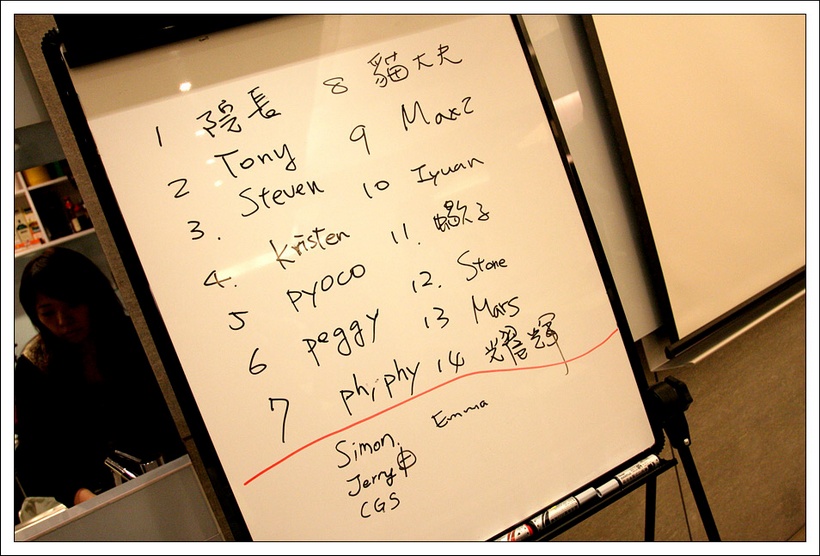 1 院長 8 貓大夫
2 Tony 9 Max2
3. Steven 10 Iyuan
4. Kristen 11. 蠍子
5 pyoco 12. Stone
6 peggy 13 Mars
7 phiphy 14 耀輝
Simon. Emma
Jerry
CGS